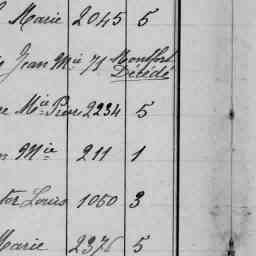 Marie 2045 5
Jean Mie 71 Montfort
Décédé
Mie Rose 2234 5
Mie 211 1
tor Louis 1060 3
Marie 2376 5